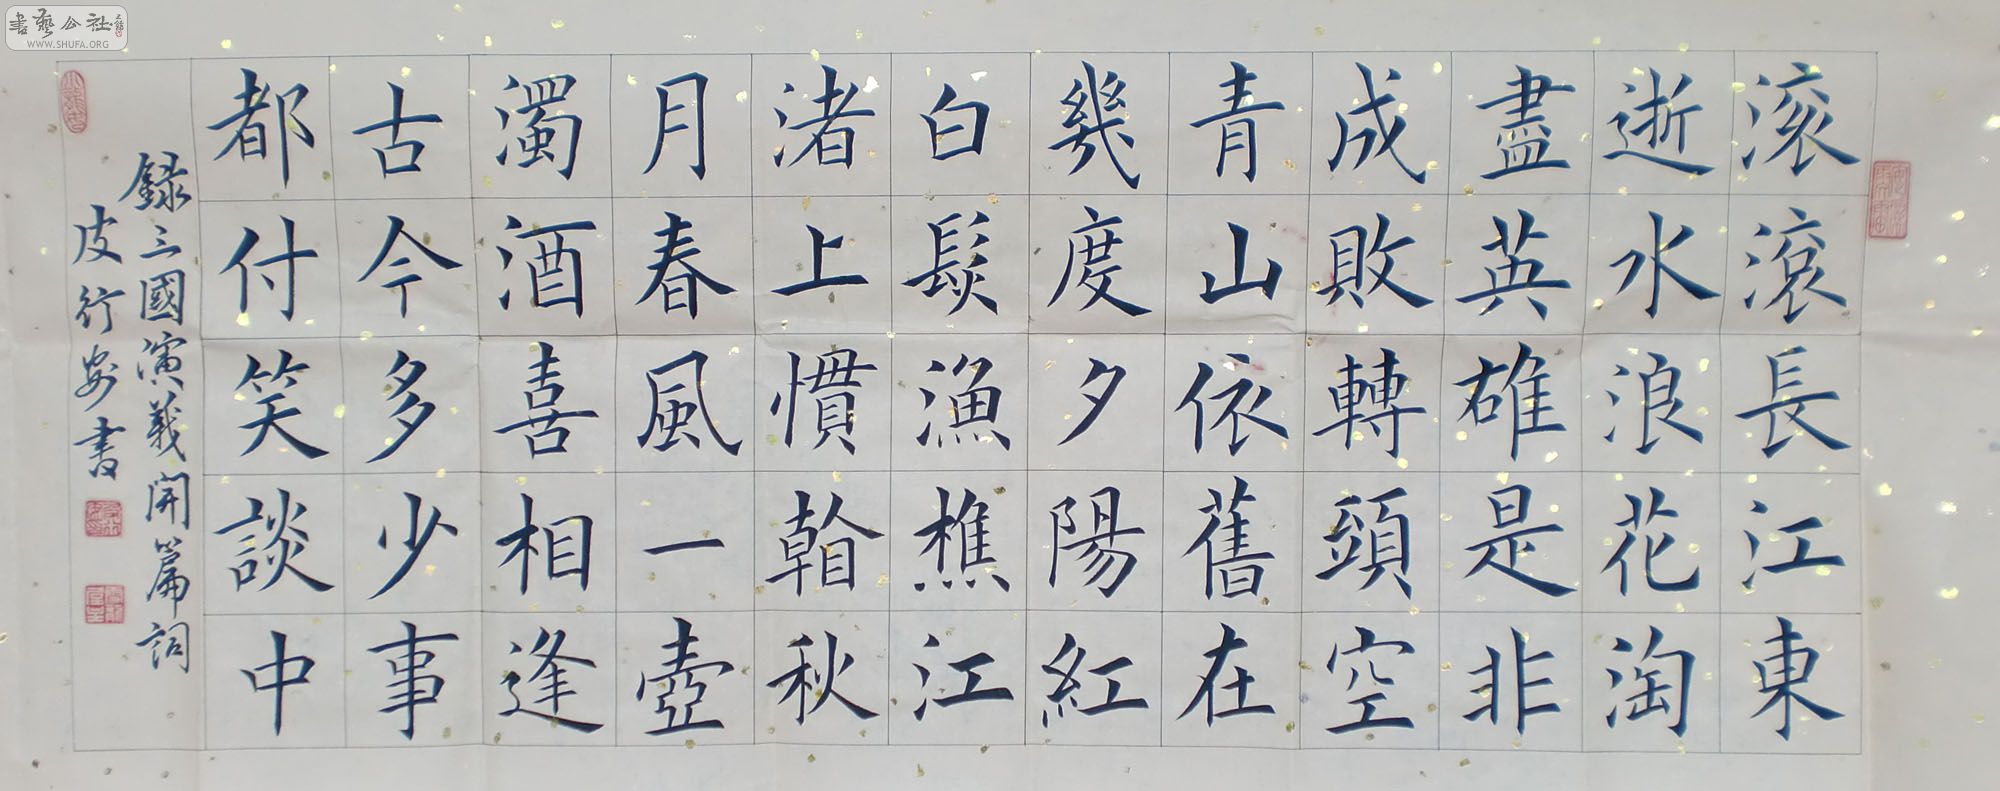 滚滾長江東
逝水浪花淘
盡英雄是非
成敗轉頭空
青山依舊在
幾度夕陽紅
白髮漁樵江
渚上慣看秋
月春風一壺
濁酒喜相逢
古今多少事
都付笑談中
錄三國演義開篇詞
皮行安書
書藝公社
WWW.SHUFA.ORG